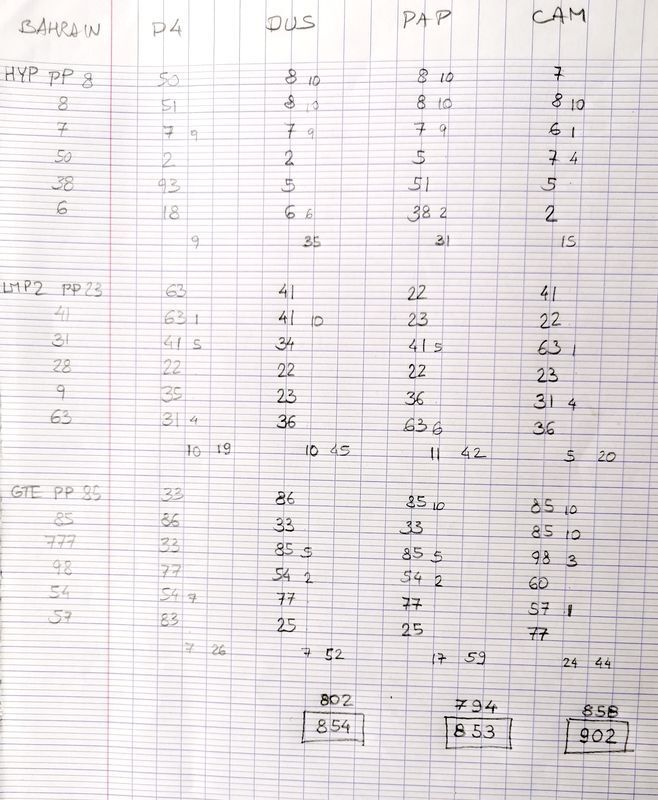 BAHRAIN D4 DUS PAP CAM
HYP PP 8 50 8 10 8 10 7
8 51 8 10 8 10 8 10
7 7 9 7 9 7 9 6 1
50 2 2 5 7 4
38 93 5 51 5
6 18 6 6 38 2 2
9 35 31 15
LMP2 PP 23 63 41 22 41
41 63 1 41 10 23 22
31 41 5 34 41 5 63 1
28 22 22 22 23
9 35 23 36 31 4
63 31 4 36 63 6 36
10 19 10 45 11 42 5 20
GTE PP 85 33 86 85 10 85 10
85 86 33 33 85 10
777 33 85 5 85 5 98 3
98 77 54 2 54 2 60
54 54 7 77 77 57 1
57 83 25 25 77
7 26 7 52 17 59 24 44
802 794 858
854 853 902